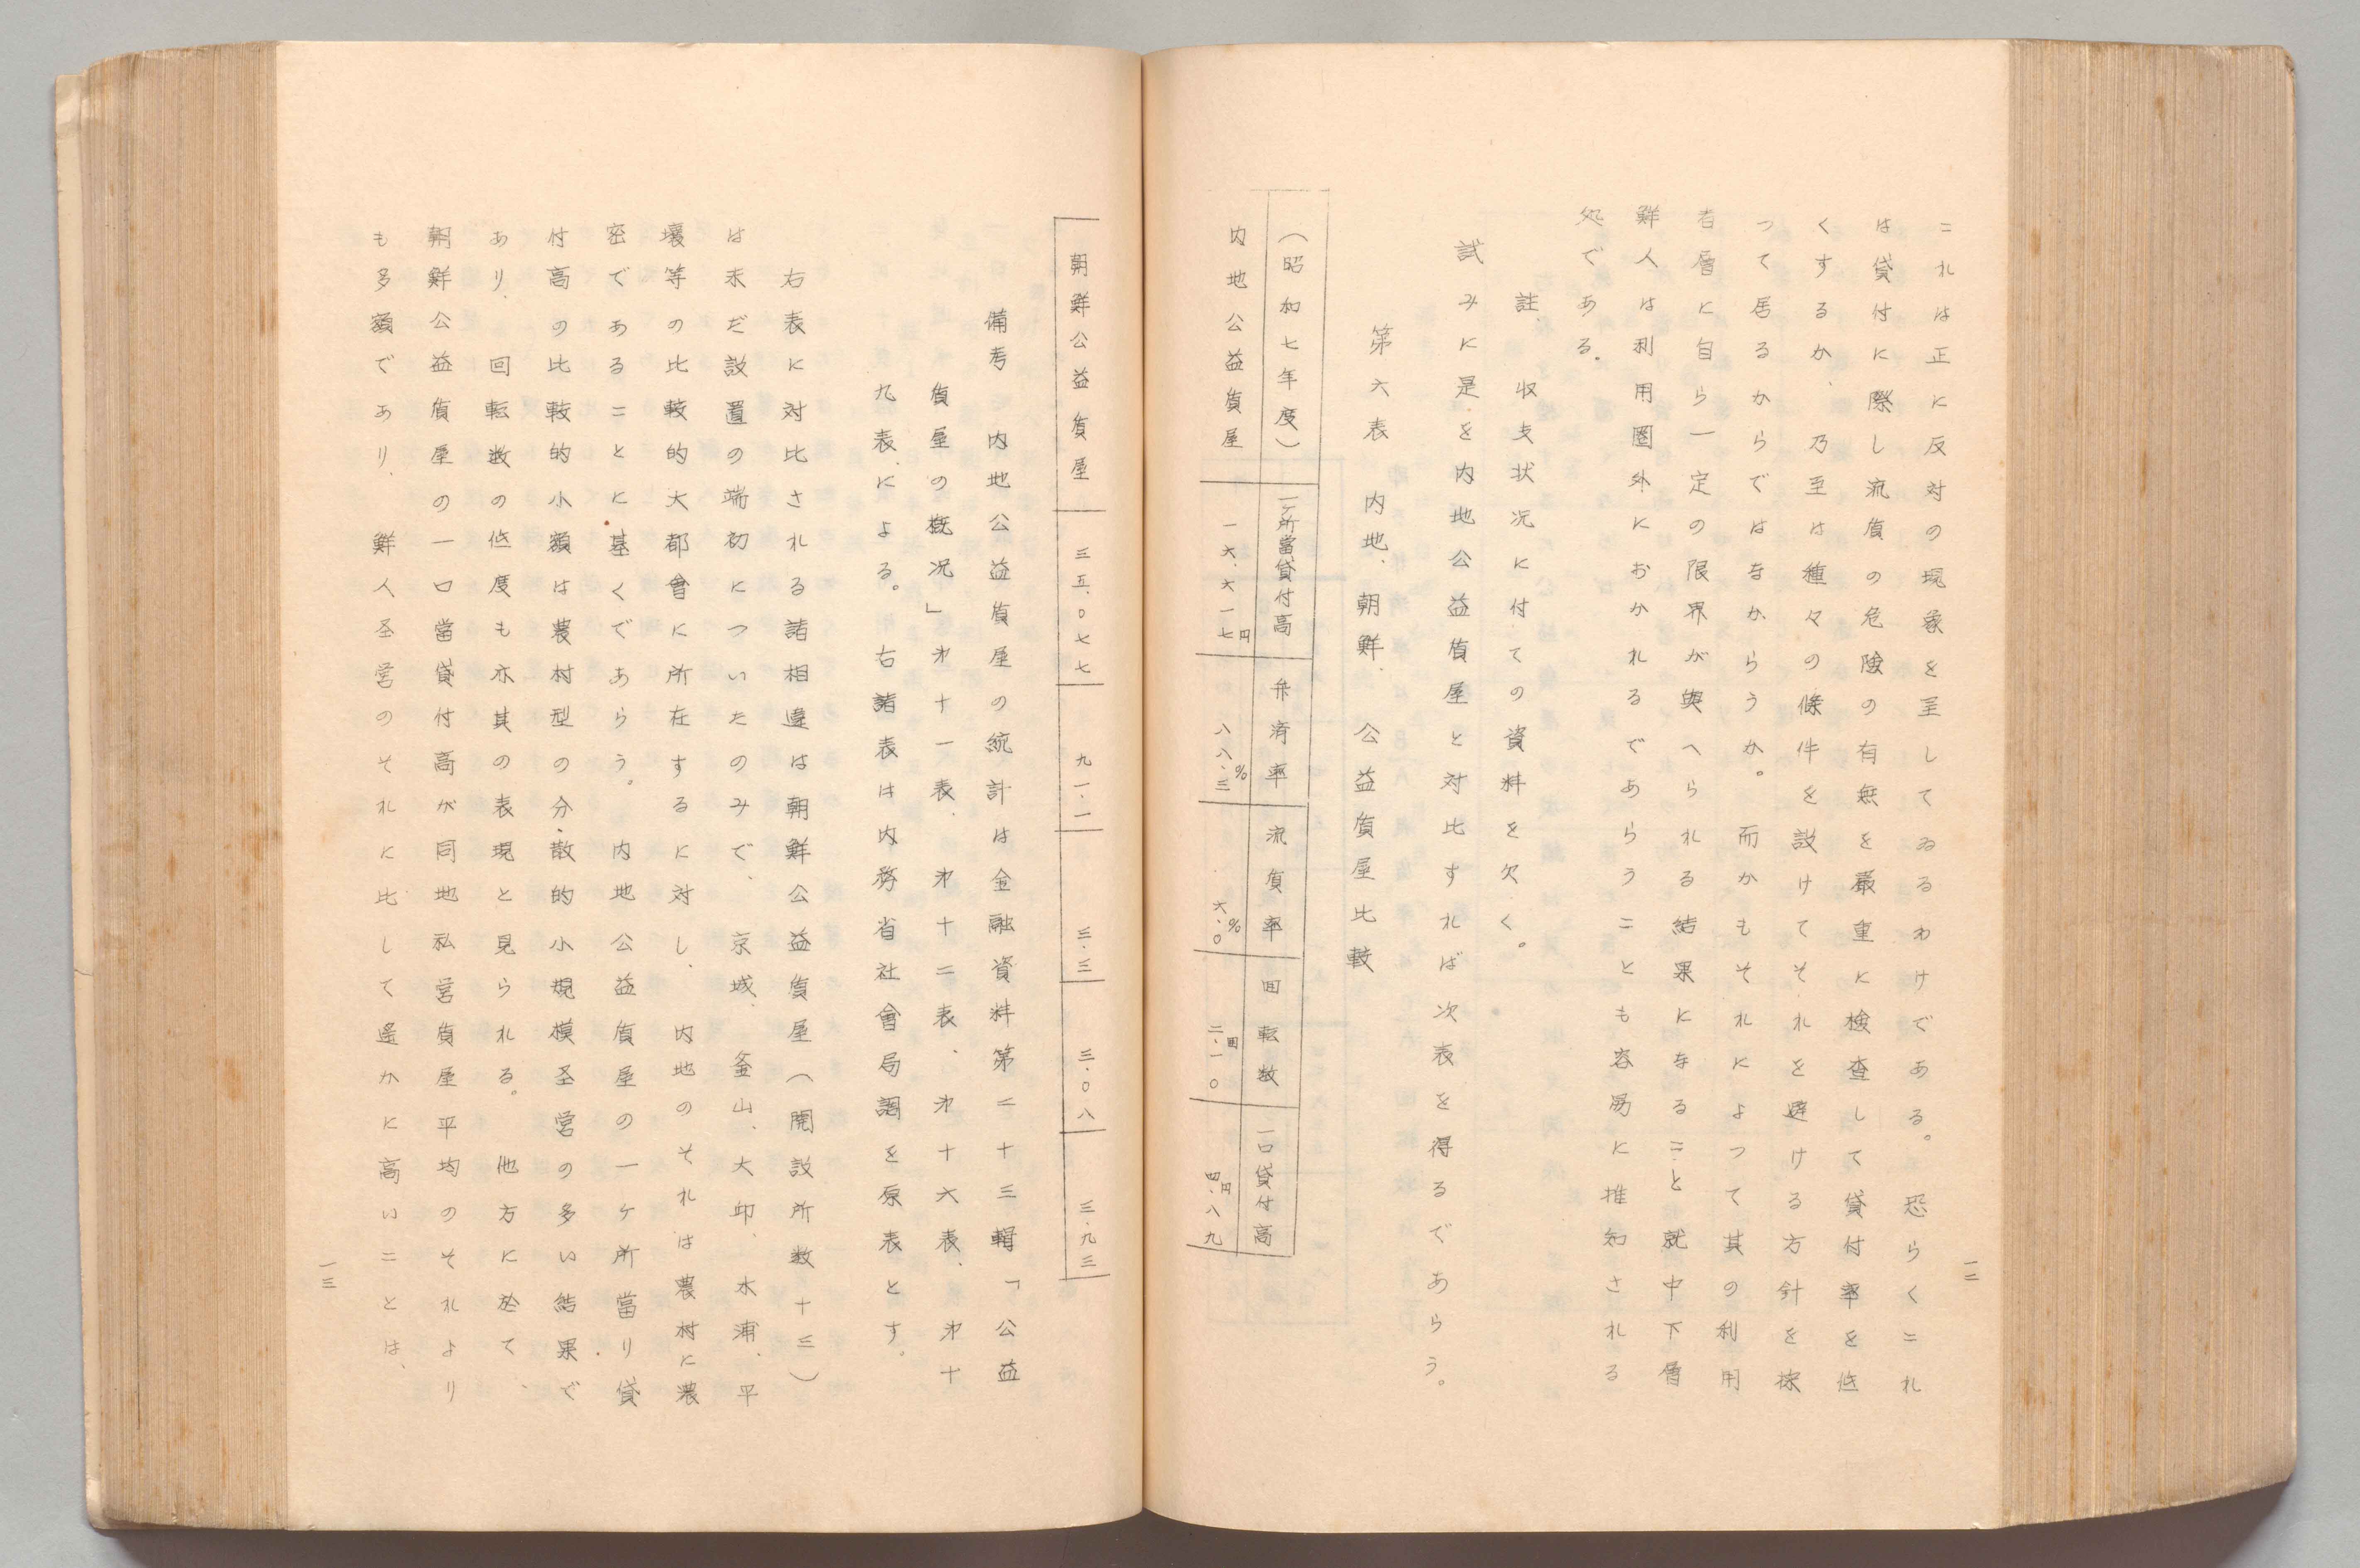 これは正に反対の現象を呈してゐるわけである。恐らくこれ
は貸付に際し流質の危険の有無を厳重に検査して貸付率を低
くするか、乃至は種々の條件を設けてそれを避ける方針を採
つて居るからではなからうか。而かもそれによつて其の利用
者層に自ら一定の限界が與へられる結果になること就中下層
鮮人は利用圏外におかれるであらうことも容易に推知される
処である。
註、収支状況に付ての資料を欠く。
試みに是を内地公益質屋と対比すれば次表を得るであらう。
第六表 内地、朝鮮、公益質屋比較
(昭和七年度) 一ヶ所當貸付高 弁済率 流質率 回転数 一口貸付高
内地公益質屋 一六、六一七円 八八・三% 六・〇% 二・一〇回 四・八九円
一二
朝鮮公益質屋 三五、〇七七 九一・一 三・三 三・〇八 三・九三
備考 内地公益質屋の統計は金融資料第二十三輯「公益
質屋の概況」オ十一表、オ十二表、オ十六表、オ十
九表による。右諸表は内務省社會局調を原表とす。
右表に対比される諸相違は朝鮮公益質屋(開設所数十三)
は未だ設置の端初についたのみで、京城、釜山、大邱、木浦、平
壌等の比較的大都會に所在するに対し、内地のそれは農村に濃
密であることに基くであらう。内地公益質屋の一ケ所當り貸
付高の比較的小額は農村型の分散的小規模圣営の多い結果で
あり、回転数の低度も亦其の表現と見られる。他方に於て、
朝鮮公益質屋の一口當貸付高が同地私営質屋平均のそれより
も多額であり、鮮人圣営のそれに比して遙かに高いことは、
一三